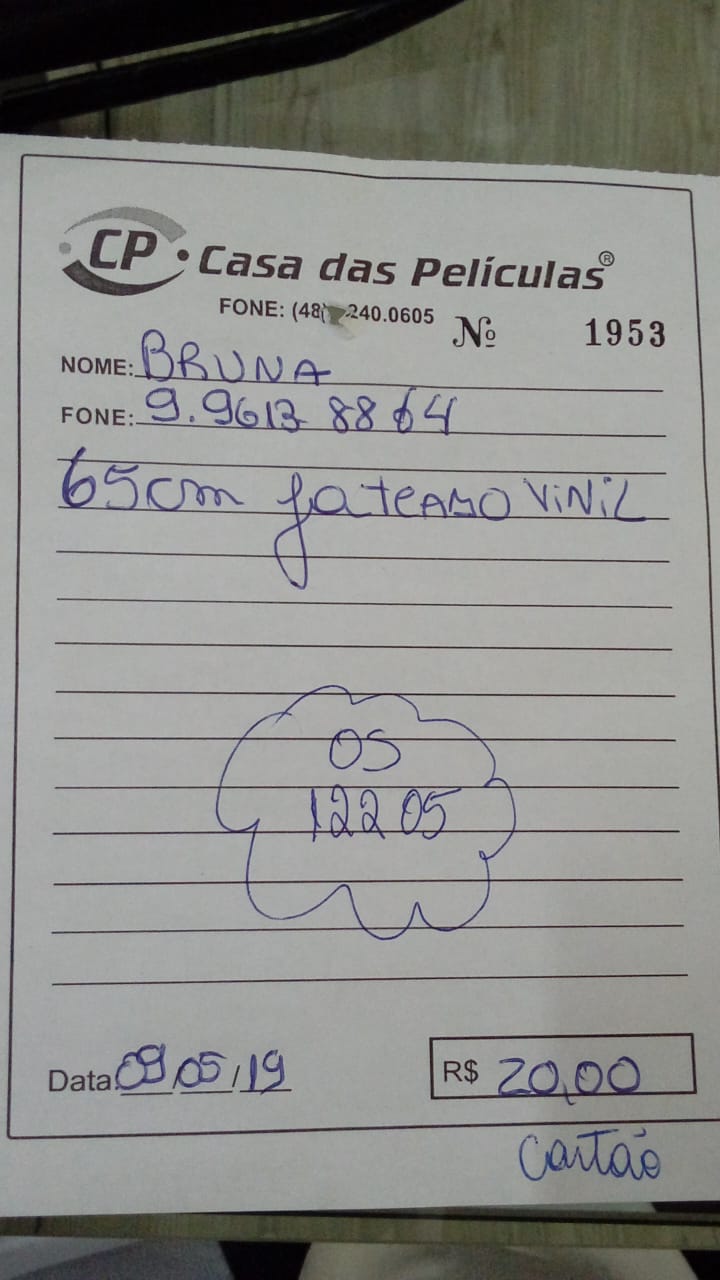 CP · Casa das Películas®
FONE: (48) 240.0605
Nº 1953
NOME: BRUNA
FONE: 9.9613 8864
65cm jateado VINIL
OS
12205
Data 09/05/19
R$ 20,00
Cartão